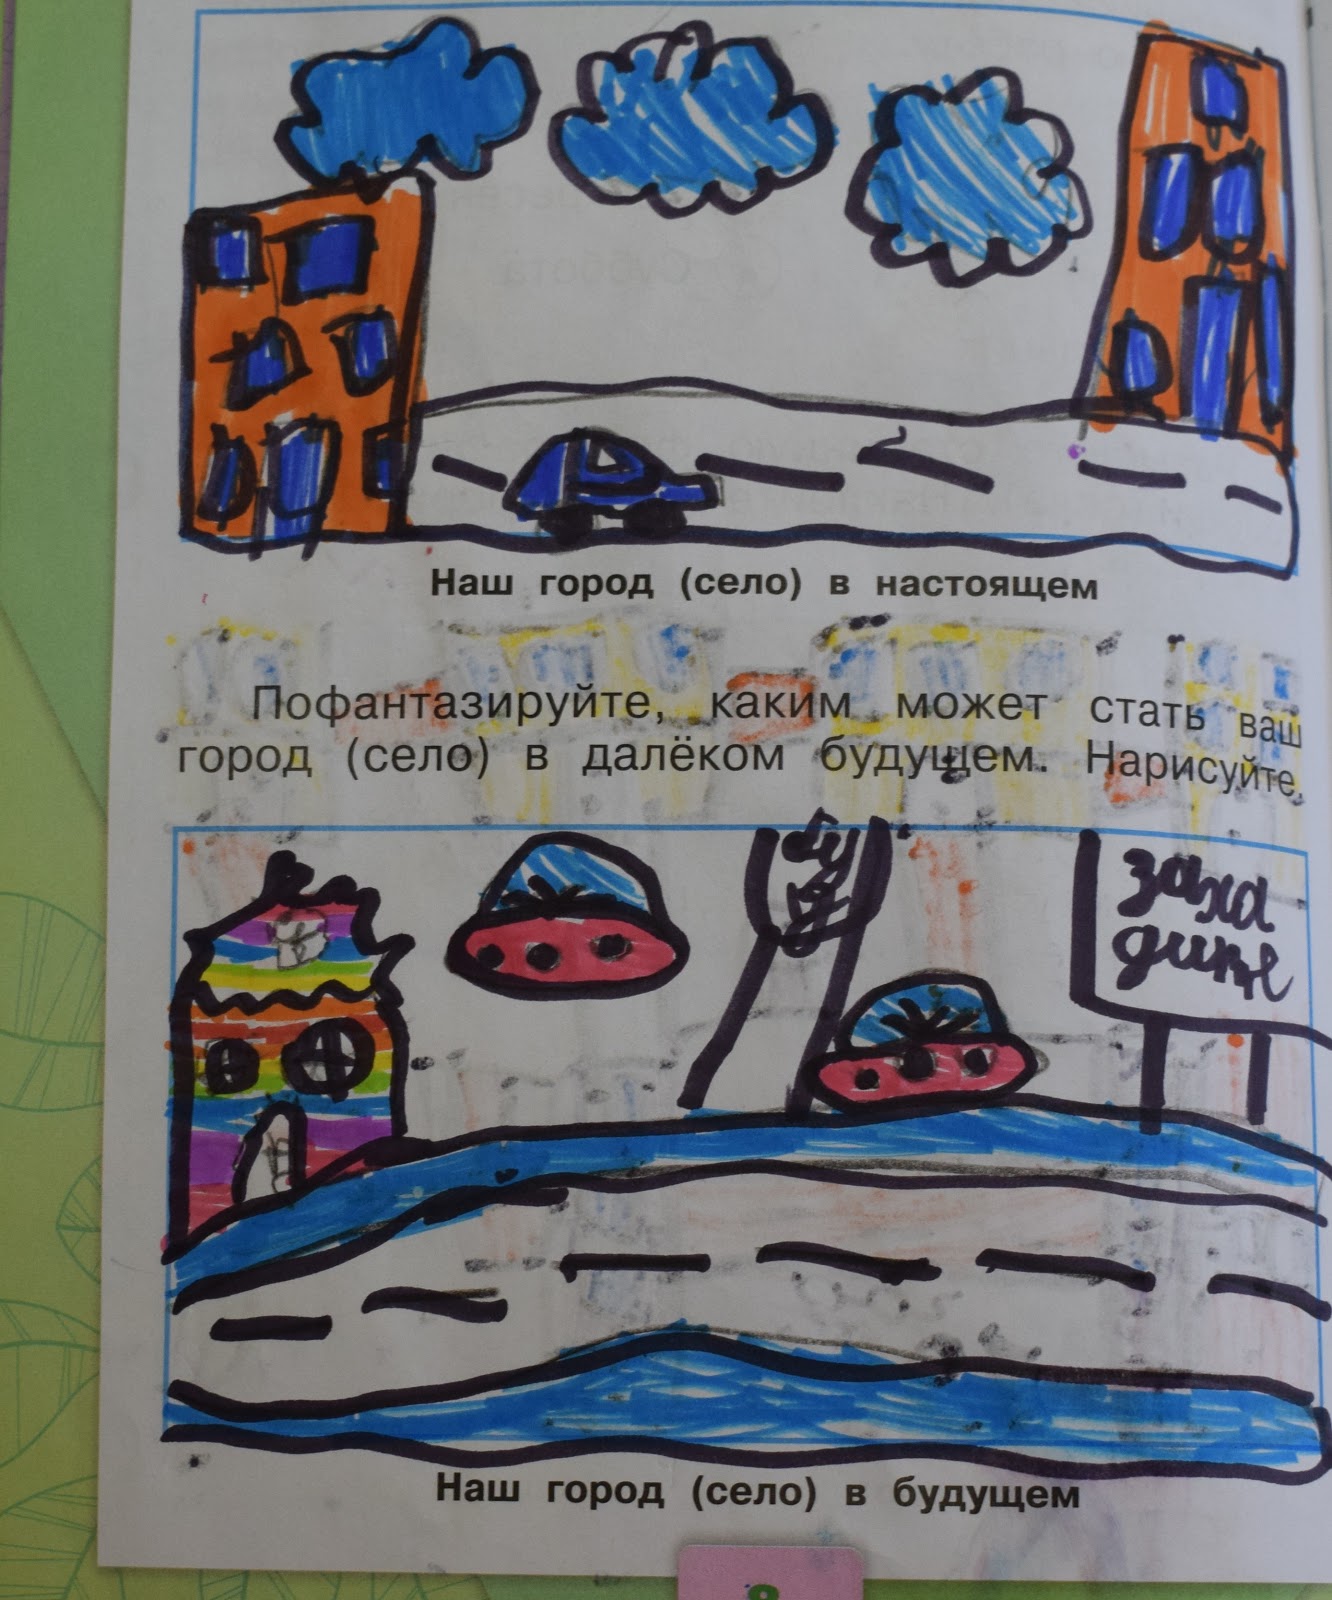 Наш город (село) в настоящем
Пофантазируйте, каким может стать ваш
город (село) в далёком будущем. Нарисуйте.
заха
дите
Наш город (село) в будущем